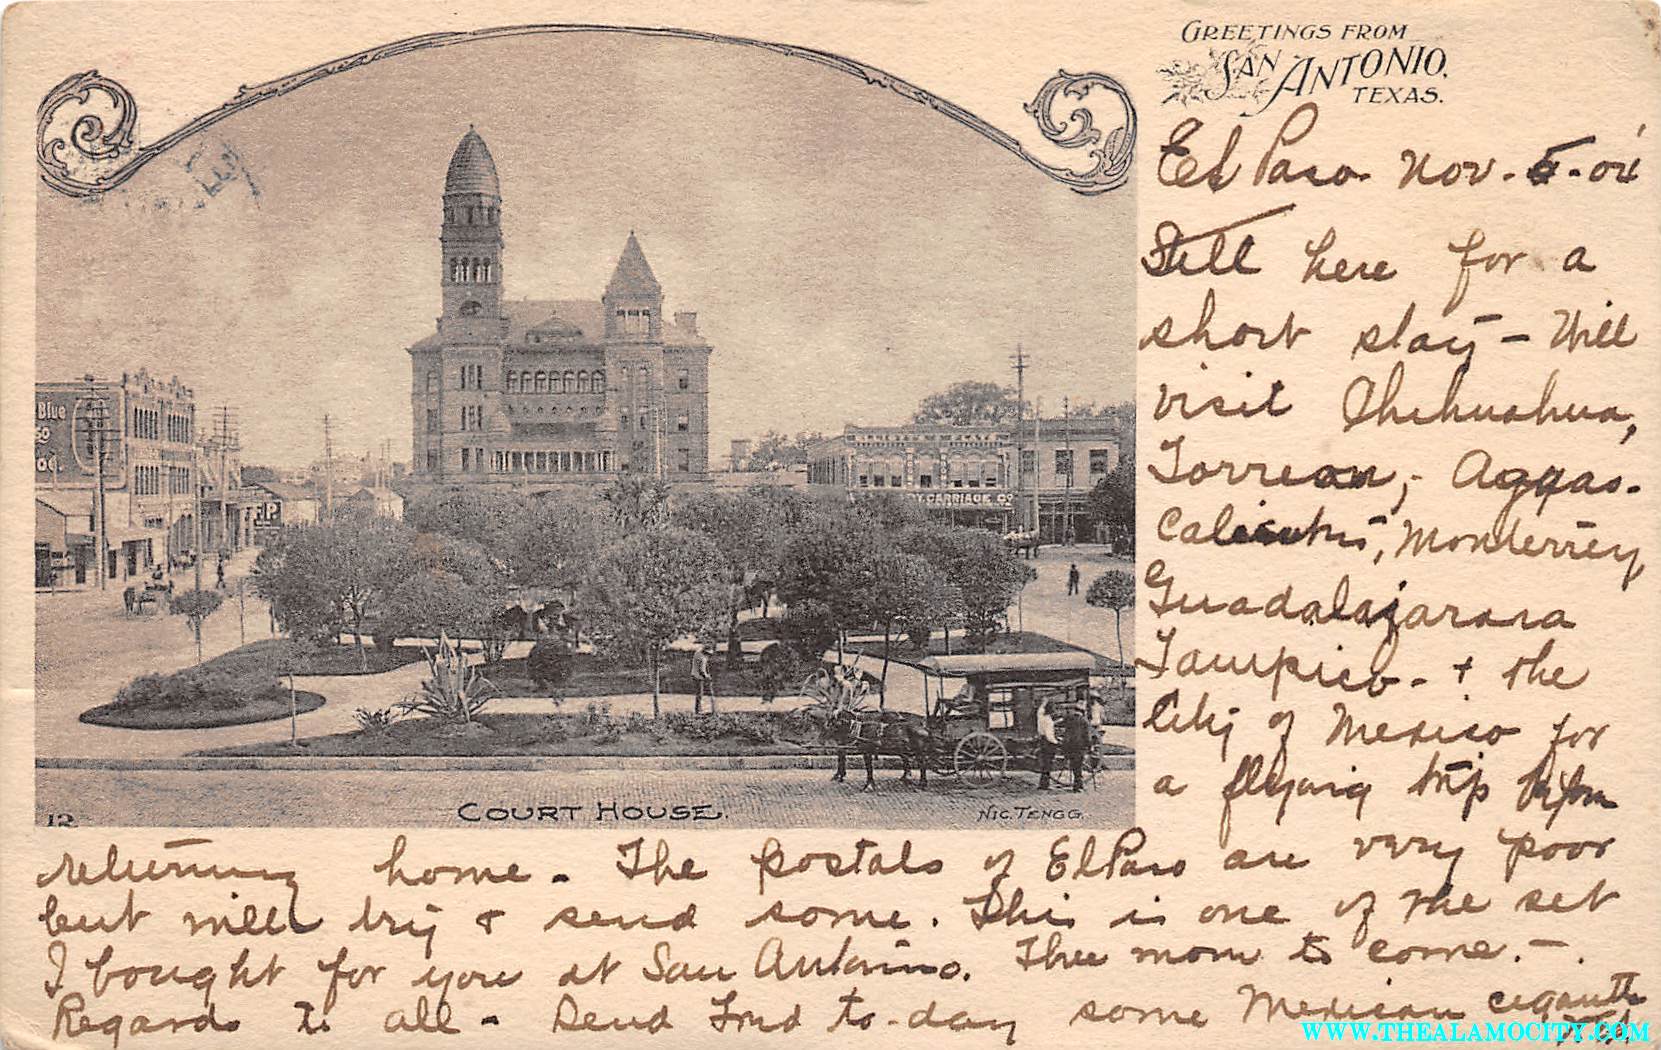 GREETINGS FROM
SAN ANTONIO,
TEXAS.
El Paso Nov. 5-04
Still here for a
short stay - Will
visit Chihuahua,
Torreon, - Aguas-
Calientes, Monterrey
Guadalajarara
Tampico - + the
City of Mexico for
a flying trip before
returning home - The postals of El Paso are very poor
but will try & send some. This is one of the set
I bought for you at San Antonio. Three more to come. -
Regards to all - Send Fred to-day some Mexican cigarettes
Blue
CARRIAGE CO
12
COURT HOUSE.
NIC. TENGG.
WWW.THEALAMOCITY.COM